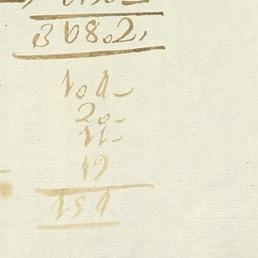 368.2,
104-
20-
11-
19
154